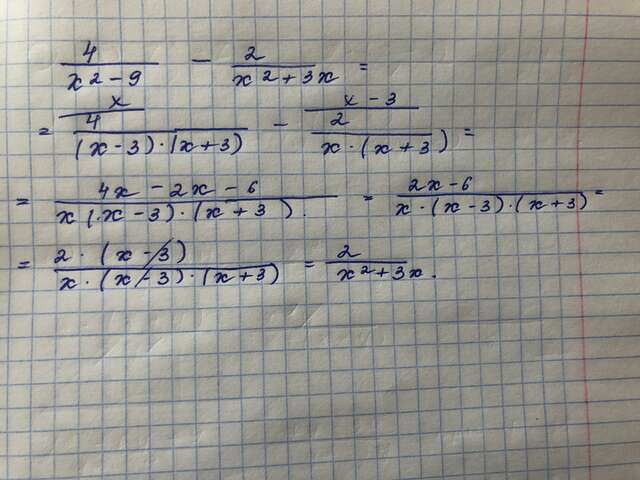 4/(x² - 9) - 2/(x² + 3x) =
= x 4/((x-3)·(x+3)) - x-3 2/(x·(x+3)) =
= (4x - 2x - 6)/(x(x-3)·(x+3)). = (2x-6)/(x·(x-3)·(x+3)) =
= (2·(x-3))/(x·(x-3)·(x+3)) = 2/(x²+3x).